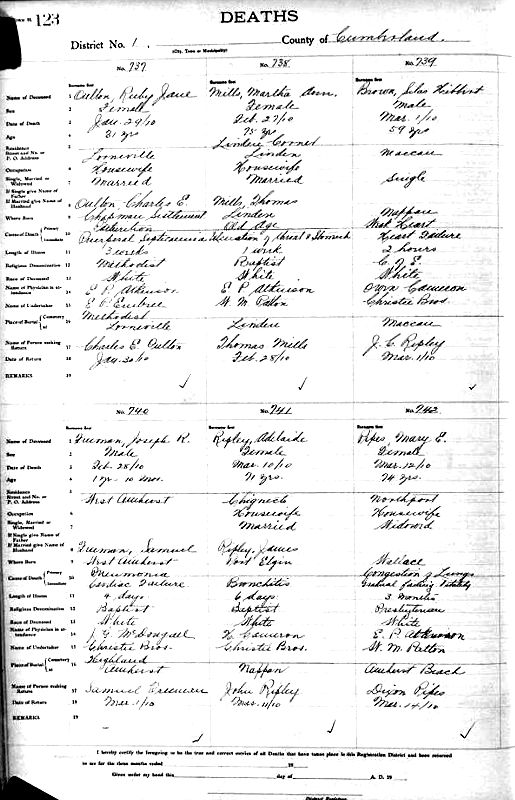 123
DEATHS
District No. 1. County of Cumberland.
(City, Town or Municipality)
No. 737 No. 738 No. 739
Surname first Surname first Surname first
Name of Deceased 1 Oulton, Ruby Jane Mills, Martha Ann. Brown, Silas Hibbert
Sex 2 Female Female Male
Date of Death 3 Jan. 29/10 Feb. 27/10 Mar. 1/10
Age 4 31 yrs 75 yrs 59 yrs
Residence Street and No. or P. O. Address 5 Lorneville Linden Maccan
Occupation 6 Housewife Housewife
Single, Married or Widowed 7 Married Married Single
If Single give Name of Father
If Married give Name of Husband 8 Oulton, Charles E. Mills, Thomas
Where Born 9 Chapman Settlement Linden Nappan
Cause of Death Primary Old Age Weak Heart
Immediate Puerperal Septicaemia Ulceration of Throat & Stomach Heart Failure
Length of Illness 11 3 weeks 1 week 2 hours
Religious Denomination 12 Methodist Baptist C. of E.
Race of Deceased 13 White White White
Name of Physician in attendance 14 E. P. Atkinson E. P. Atkinson Cameron
Name of Undertaker 15 E. P. Embree W. M. Patton Christie Bros.
Place of Burial Cemetery at 16 Methodist
Lorneville Linden Maccan
Name of Person making Return 17 Charles E. Oulton Thomas Mills J. C. Ripley
Date of Return 18 Jan. 30/10 Feb. 28/10 Mar. 1/10
REMARKS 19
No. 740 No. 741 No. 742
Surname first Surname first Surname first
Name of Deceased 1 Freeman, Joseph R. Ripley, Adelaide Pipes, Mary E.
Sex 2 Male Female Female
Date of Death 3 Feb. 28/10 Mar. 10/10 Mar. 12/10
Age 4 1 yr. 10 mos. 71 yrs. 74 yrs.
Residence Street and No. or P. O. Address 5 West Amherst Chignecto Northport
Occupation 6 Housewife Housewife
Single, Married or Widowed 7 Married Widowed
If Single give Name of Father
If Married give Name of Husband 8 Freeman, Samuel Ripley, James
Where Born 9 West Amherst Port Elgin Wallace
Cause of Death Primary 10 Pneumonia Congestion of Lungs
Immediate Cardiac Failure Bronchitis Gradual failing Vitality
Length of Illness 11 4 days 6 days 3 months
Religious Denomination 12 Baptist Baptist Presbyterian
Race of Deceased 13 White White White
Name of Physician in attendance 14 J. G. McDougall H. Cameron E. P. Atkinson
Name of Undertaker 15 Christie Bros. Christie Bros. W. M. Patton
Place of Burial Cemetery at 16 Highland
Amherst Nappan Amherst Beach
Name of Person making Return 17 Samuel Freeman John Ripley Dixon Pipes
Date of Return 18 Mar. 1/10 Mar. 11/10 Mar. 14/10
REMARKS 19
I hereby certify the foregoing to be the true and correct entries of all Deaths that have taken place in this Registration District and been returned
to me for the three months ended 19
Given under my hand this day of A. D. 19